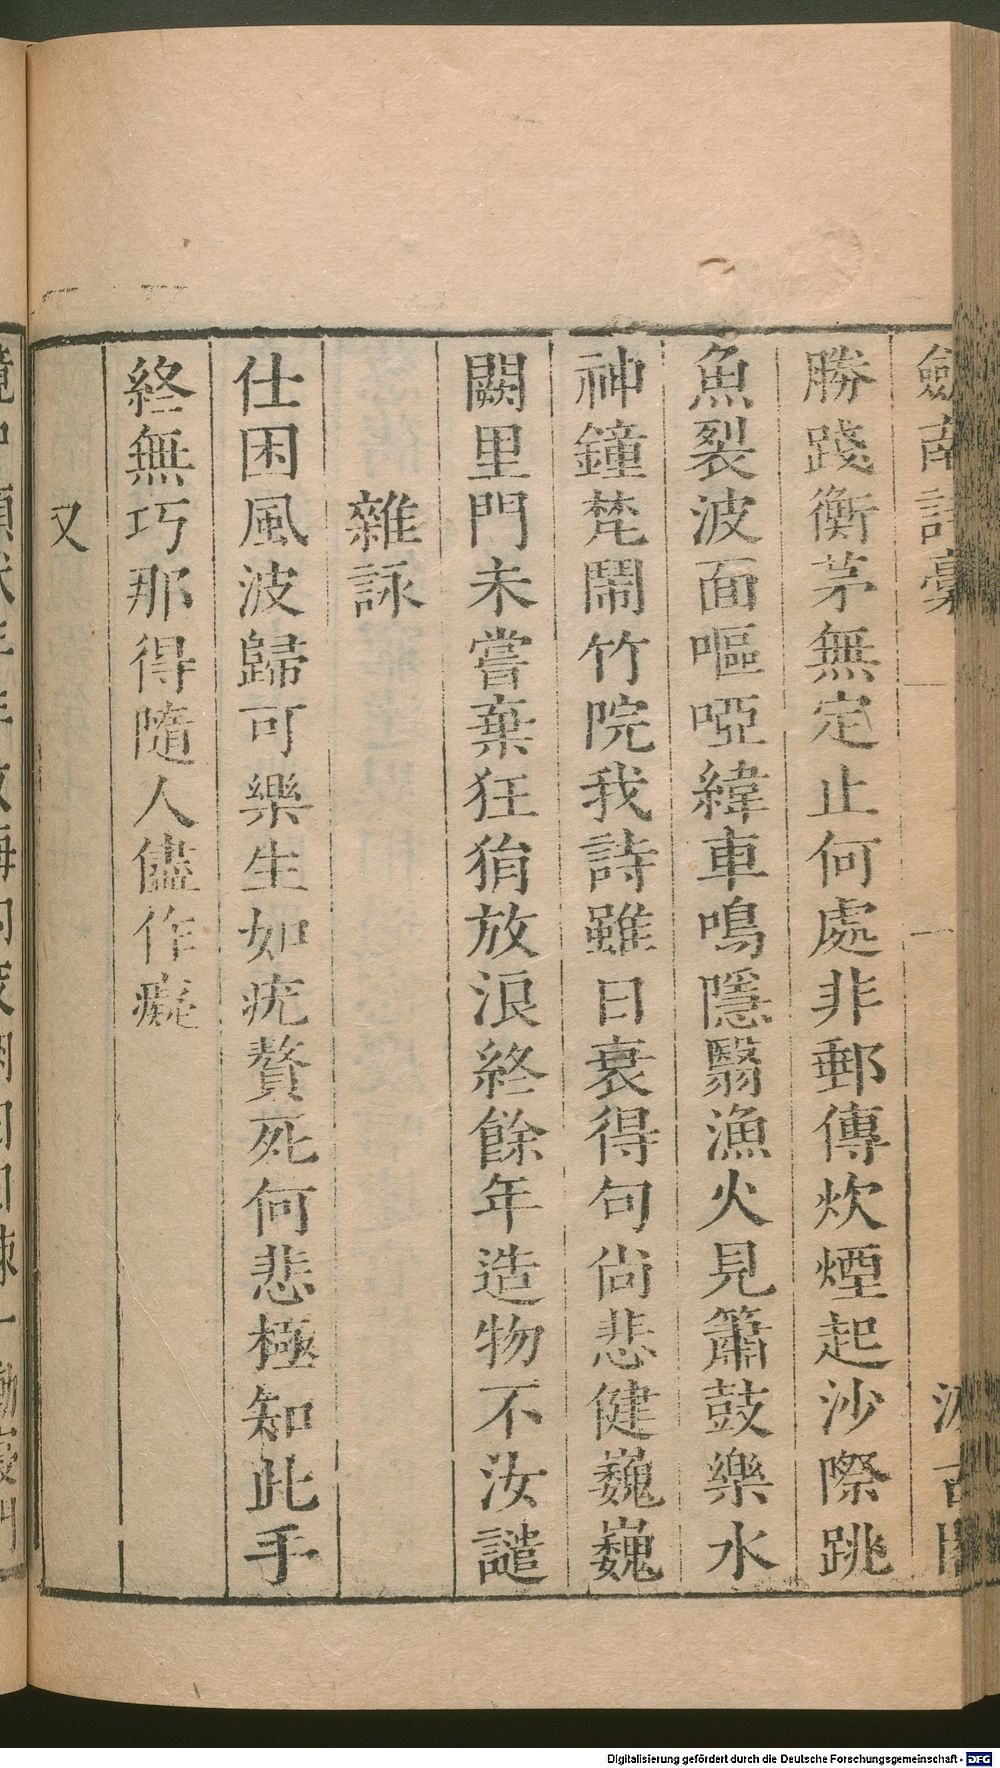 劍南詩藁
汲古閣
勝踐衡茅無定止何處非郵傳炊煙起沙際跳
魚裂波面嘔啞緯車鳴隱翳漁火見簫鼓樂水
神鐘梵鬧竹院我詩雖日衰得句尚悲健巍巍
闕里門未嘗棄狂狷放浪終餘年造物不汝譴
雜詠
仕困風波歸可樂生如疣贅死何悲極知此手
終無巧那得隨人儘作癡
又
Digitalisierung gefördert durch die Deutsche Forschungsgemeinschaft - DFG